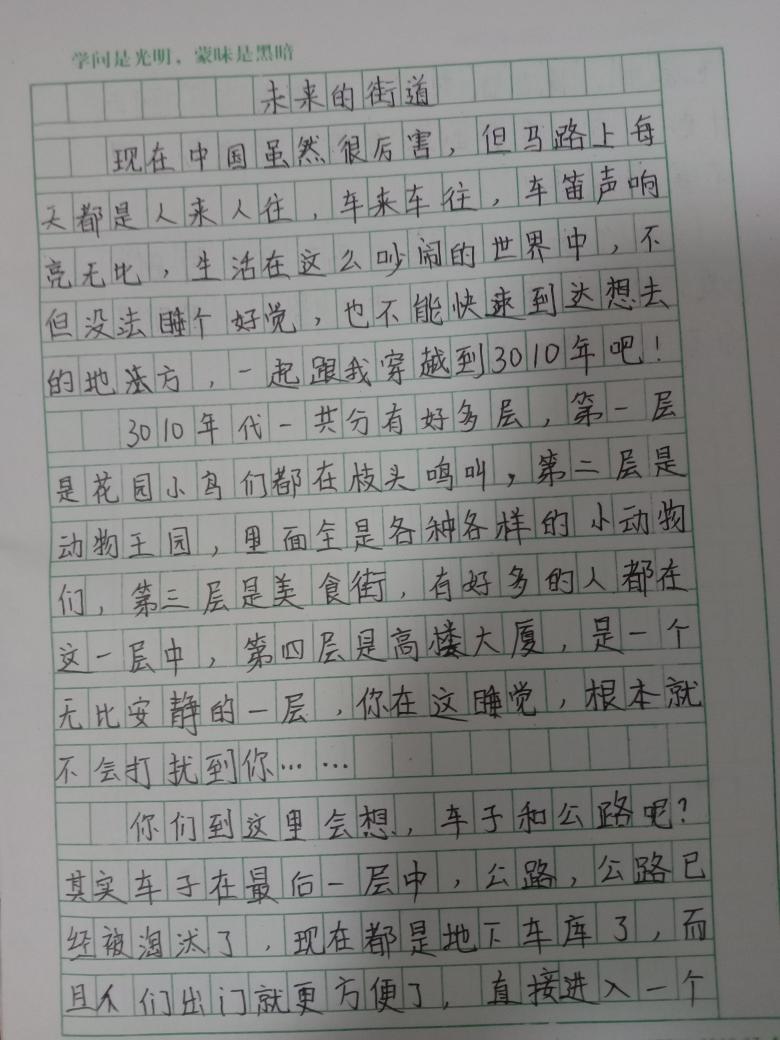 学问是光明，蒙昧是黑暗
未来的街道
现在中国虽然很厉害，但马路上每
天都是人来人往，车来车往，车笛声响
亮无比，生活在这么吵闹的世界中，不
但没法睡个好觉，也不能快速到达想去
的地方，一起跟我穿越到3010年吧！
3010年代一共分有好多层，第一层
是花园小鸟们都在枝头鸣叫，第二层是
动物王园，里面全是各种各样的小动物
们，第三层是美食街，有好多的人都在
这一层中，第四层是高楼大厦，是一个
无比安静的一层，你在这睡觉，根本就
不会打扰到你……
你们到这里会想，车子和公路呢？
其实车子在最后一层中，公路，公路已
经被淘汰了，现在都是地下车库了，而
且人们出门就更方便了，直接进入一个